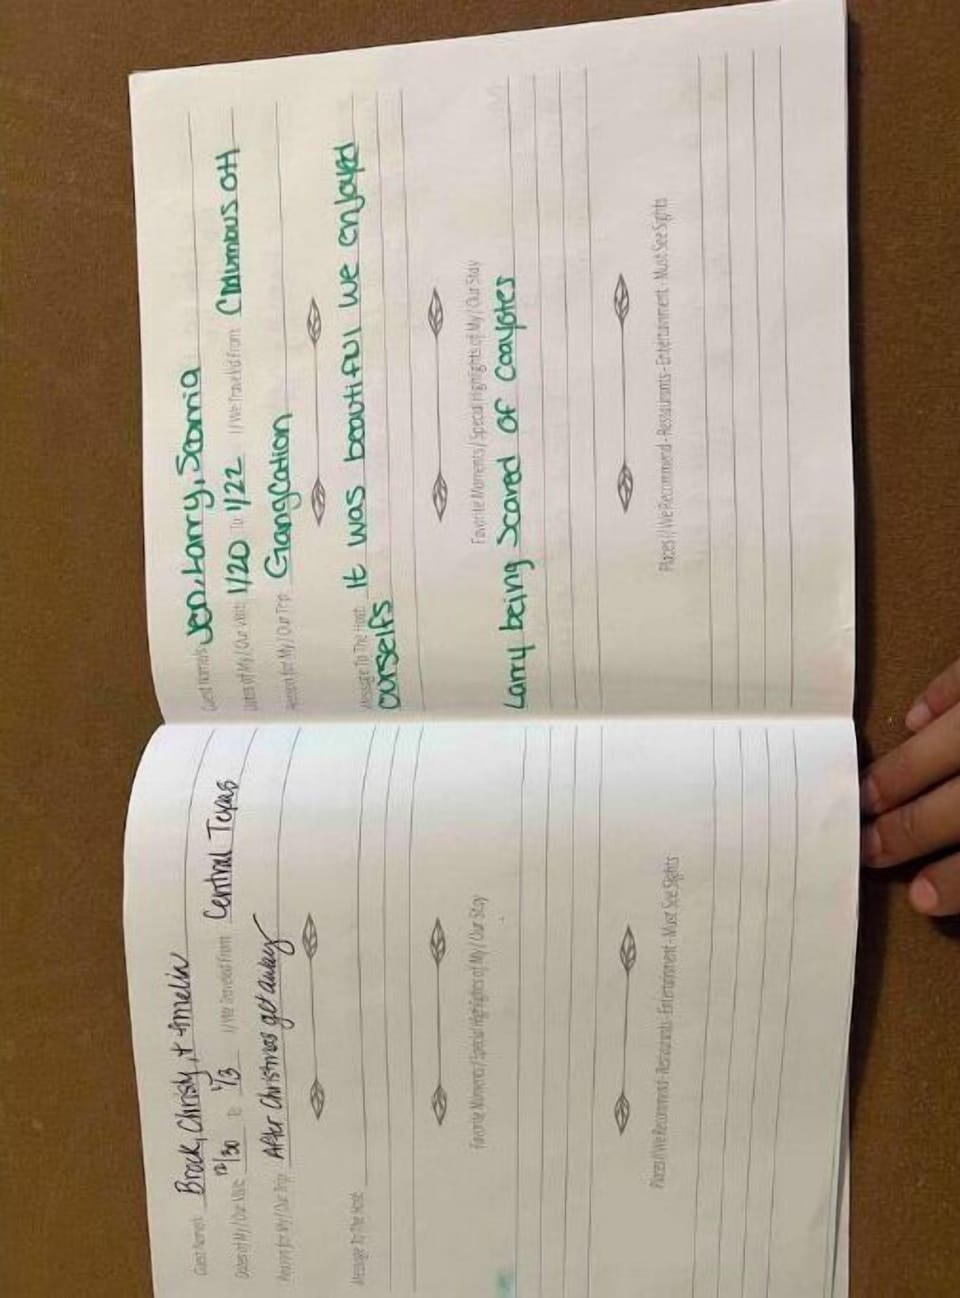 Guest Name/s Brock, Christy, + Amelia
Dates of My / Our Visit: 12/30 to 1/3 I / We Traveled From: Central Texas
Reason for My / Our Trip: After Christmas get away
Message To The Host:
Favorite Moments / Special Highlights of My / Our Stay
Places I / We Recommend - Restaurants - Entertainment - Must See Sights
Guest Name/s Jen, Larry, Scorria
Dates of My / Our Visit: 1/20 To 1/22 I / We Traveled From: Columbus OH
Reason for My / Our Trip: Gangcation
Message To The Host: It was beautiful we enjoyed
ourselfs
Favorite Moments / Special Highlights of My / Our Stay
Larry being scared of coayotes
Places I / We Recommend - Restaurants - Entertainment - Must See Sights